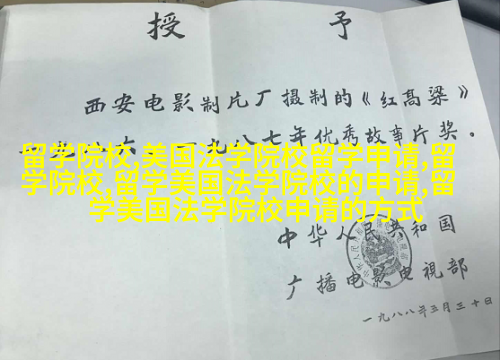 授 予
西安电影制片厂摄制的《红高粱》
一九八六、一九八七年优秀故事片奖。
留学院校,美国法学院校留学申请,留
学院校,留学美国法学院校的申请,留
学美国法学院校申请的方式
中华人民共和国
广播电影电视部
一九八八年三月三十日